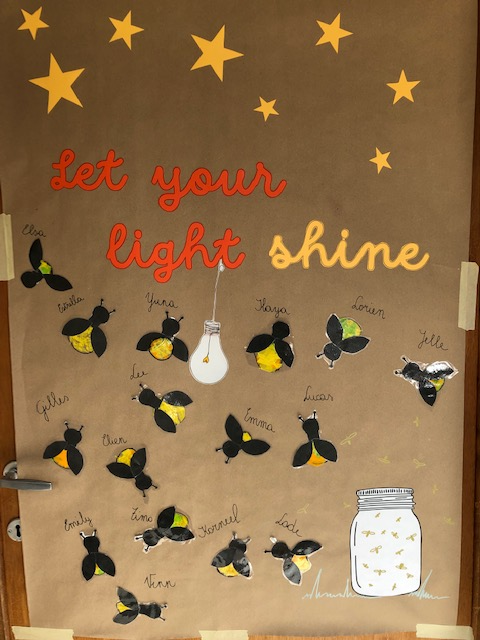 Let your
light shine
Elsa
Emilia
Yuna
Kaya
Lorien
Jelle
Lee
Gilles
Elien
Emma
Lucas
Emely
Timo
Korneel
Lode
Venn